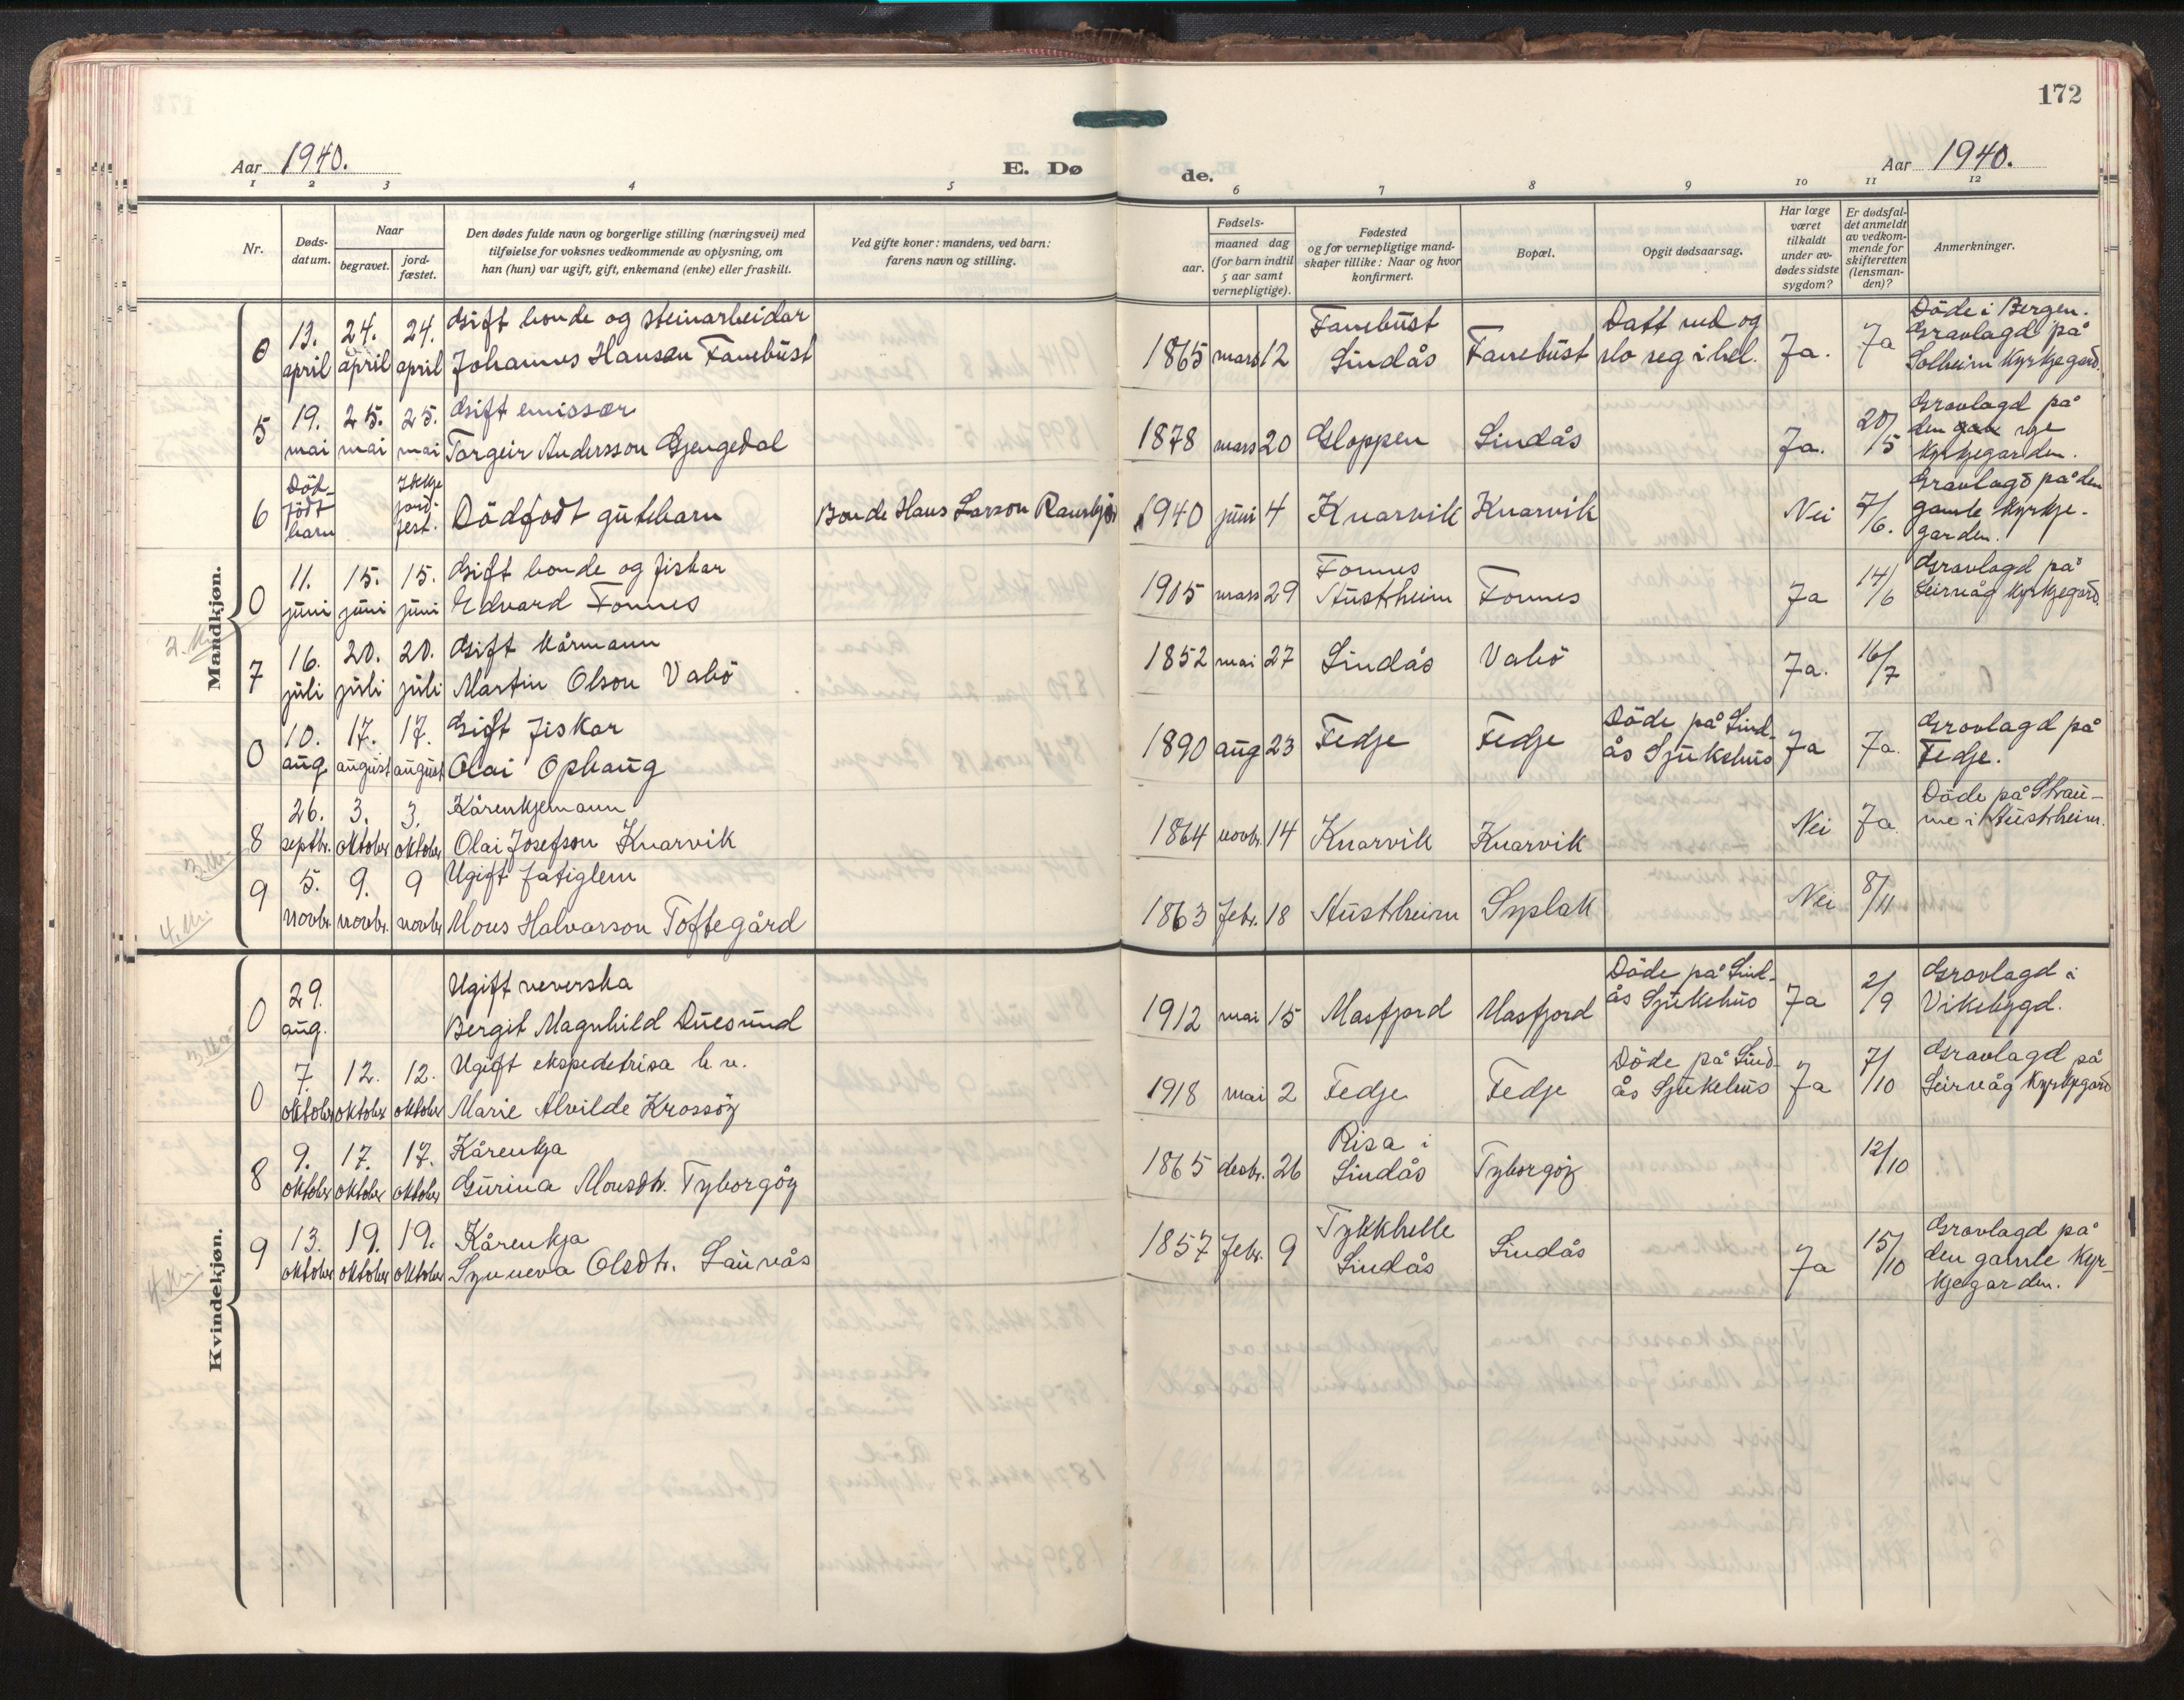 172
Aar 1940.
E. Dø
de.
Aar 1940.
1 2 3 4 5 6 7 8 9 10 11 12
Nr.
Døds-
datum.
Naar
begravet.
jord-
fæstet.
Den dødes fulde navn og borgerlige stilling (næringsvei) med
tilføielse for voksnes vedkommende av oplysning, om
han (hun) var ugift, gift, enkemand (enke) eller fraskilt.
Ved gifte koner: mandens, ved barn:
farens navn og stilling.
Fødsels-
aar.
maaned dag
(for barn indtil
5 aar samt
vernepligtige).
Fødested
og for vernepligtige mand-
skaper tillike: Naar og hvor
konfirmert.
Bopæl.
Opgit dødsaarsag.
Har læge
været
tilkaldt
under av-
dødes sidste
sygdom?
Er dødsfal-
det anmeldt
av vedkom-
mende for
skifteretten
(lensman-
den)?
Anmerkninger.
Mandkjøn.
0 13. april 24. april 24. april
Gift bonde og steinarbeidar
Johannes Hansen Fanebust
1865 mars 12
Fanebust
Lindås
Fanebust
Datt ned og
slo seg i hel.
Ja. Ja
Döde i Bergen.
Gravlagd på
Solheim kyrkjegard.
5 19. mai 25. mai 25. mai
Gift emissær
Torgeir Andersson Gjengedal
1878 mars 20 Gloppen Lindås Ja. 20/5
Gravlagd på
den nye
kyrkjegarden.
6 Död-
födt
barn
Ikkje
jord-
fest.
Dödfödt gutebarn
Bonde Hans Larsson
1940 juni 4 Knarvik Knarvik Nei 7/6.
Gravlagd på den
gamle kyrkje-
garden.
0 11. juni 15. juni 15. juni
Gift bonde og fiskar
Edvard Fonnes
1905 mars 29
Fonnes
Austrheim
Fonnes Ja 14/6
Gravlagd på
Leirvåg kyrkjegard.
2. kv.
7 16. juli 20. juli 20. juli
Gift kårmann
Martin Olson Vabö
1852 mai 27 Lindås Vabö Ja. 16/7
0 10. aug 17. august 17. august
Gift fiskar
Olai Ophaug
1890 aug 23 Fedje Fedje
Döde på Lind-
ås Sjukehus
Ja Ja.
Gravlagd på
Fedje.
8 26. septbr. 3. oktober 3. oktober
Kårenkjemann
Olai Josefson Knarvik
1864 novbr. 14 Knarvik Knarvik Nei Ja.
Döde på Strau-
me i Austrheim.
3. kv.
9 5. novbr. 9. novbr. 9 novbr.
Ugift fatiglem
Mons Halvarson Toftegård
1863 febr. 18 Austrheim Syslak Nei 8/11
4. kv.
Kvindekjøn.
0 29. aug.
Ugift veverska
Bergit Magnhild Duesund
1912 mai 15 Masfjord Masfjord
Döde på Lind-
ås Sjukehus
Ja 2/9
Gravlagd i
Vikebygd.
3. kv.
0 7. oktober 12. oktober 12. oktober
Ugift ekspedetrisa b. v.
Marie Alvilde Krossöy
1918 mai 2 Fedje Fedje
Döde på Lind-
ås Sjukehus
Ja 7/10
Gravlagd på
Leirvåg kyrkjegard
8 9. oktober 17. oktober 17. oktober
Kårenkja
Gurina Monsdtr. Tyborgöy
1865 desbr. 26
Risa i
Lindås
Tyborgöy 12/10
9 13. oktober 19. oktober 19. oktober
Kårenkja
Synneva Olsdtr. Laurås
1857 febr. 9
Tykkhelle
Lindås
Lindås Ja 15/10
Gravlagd på
den gamle kyr-
kjegarden.
4. kv.